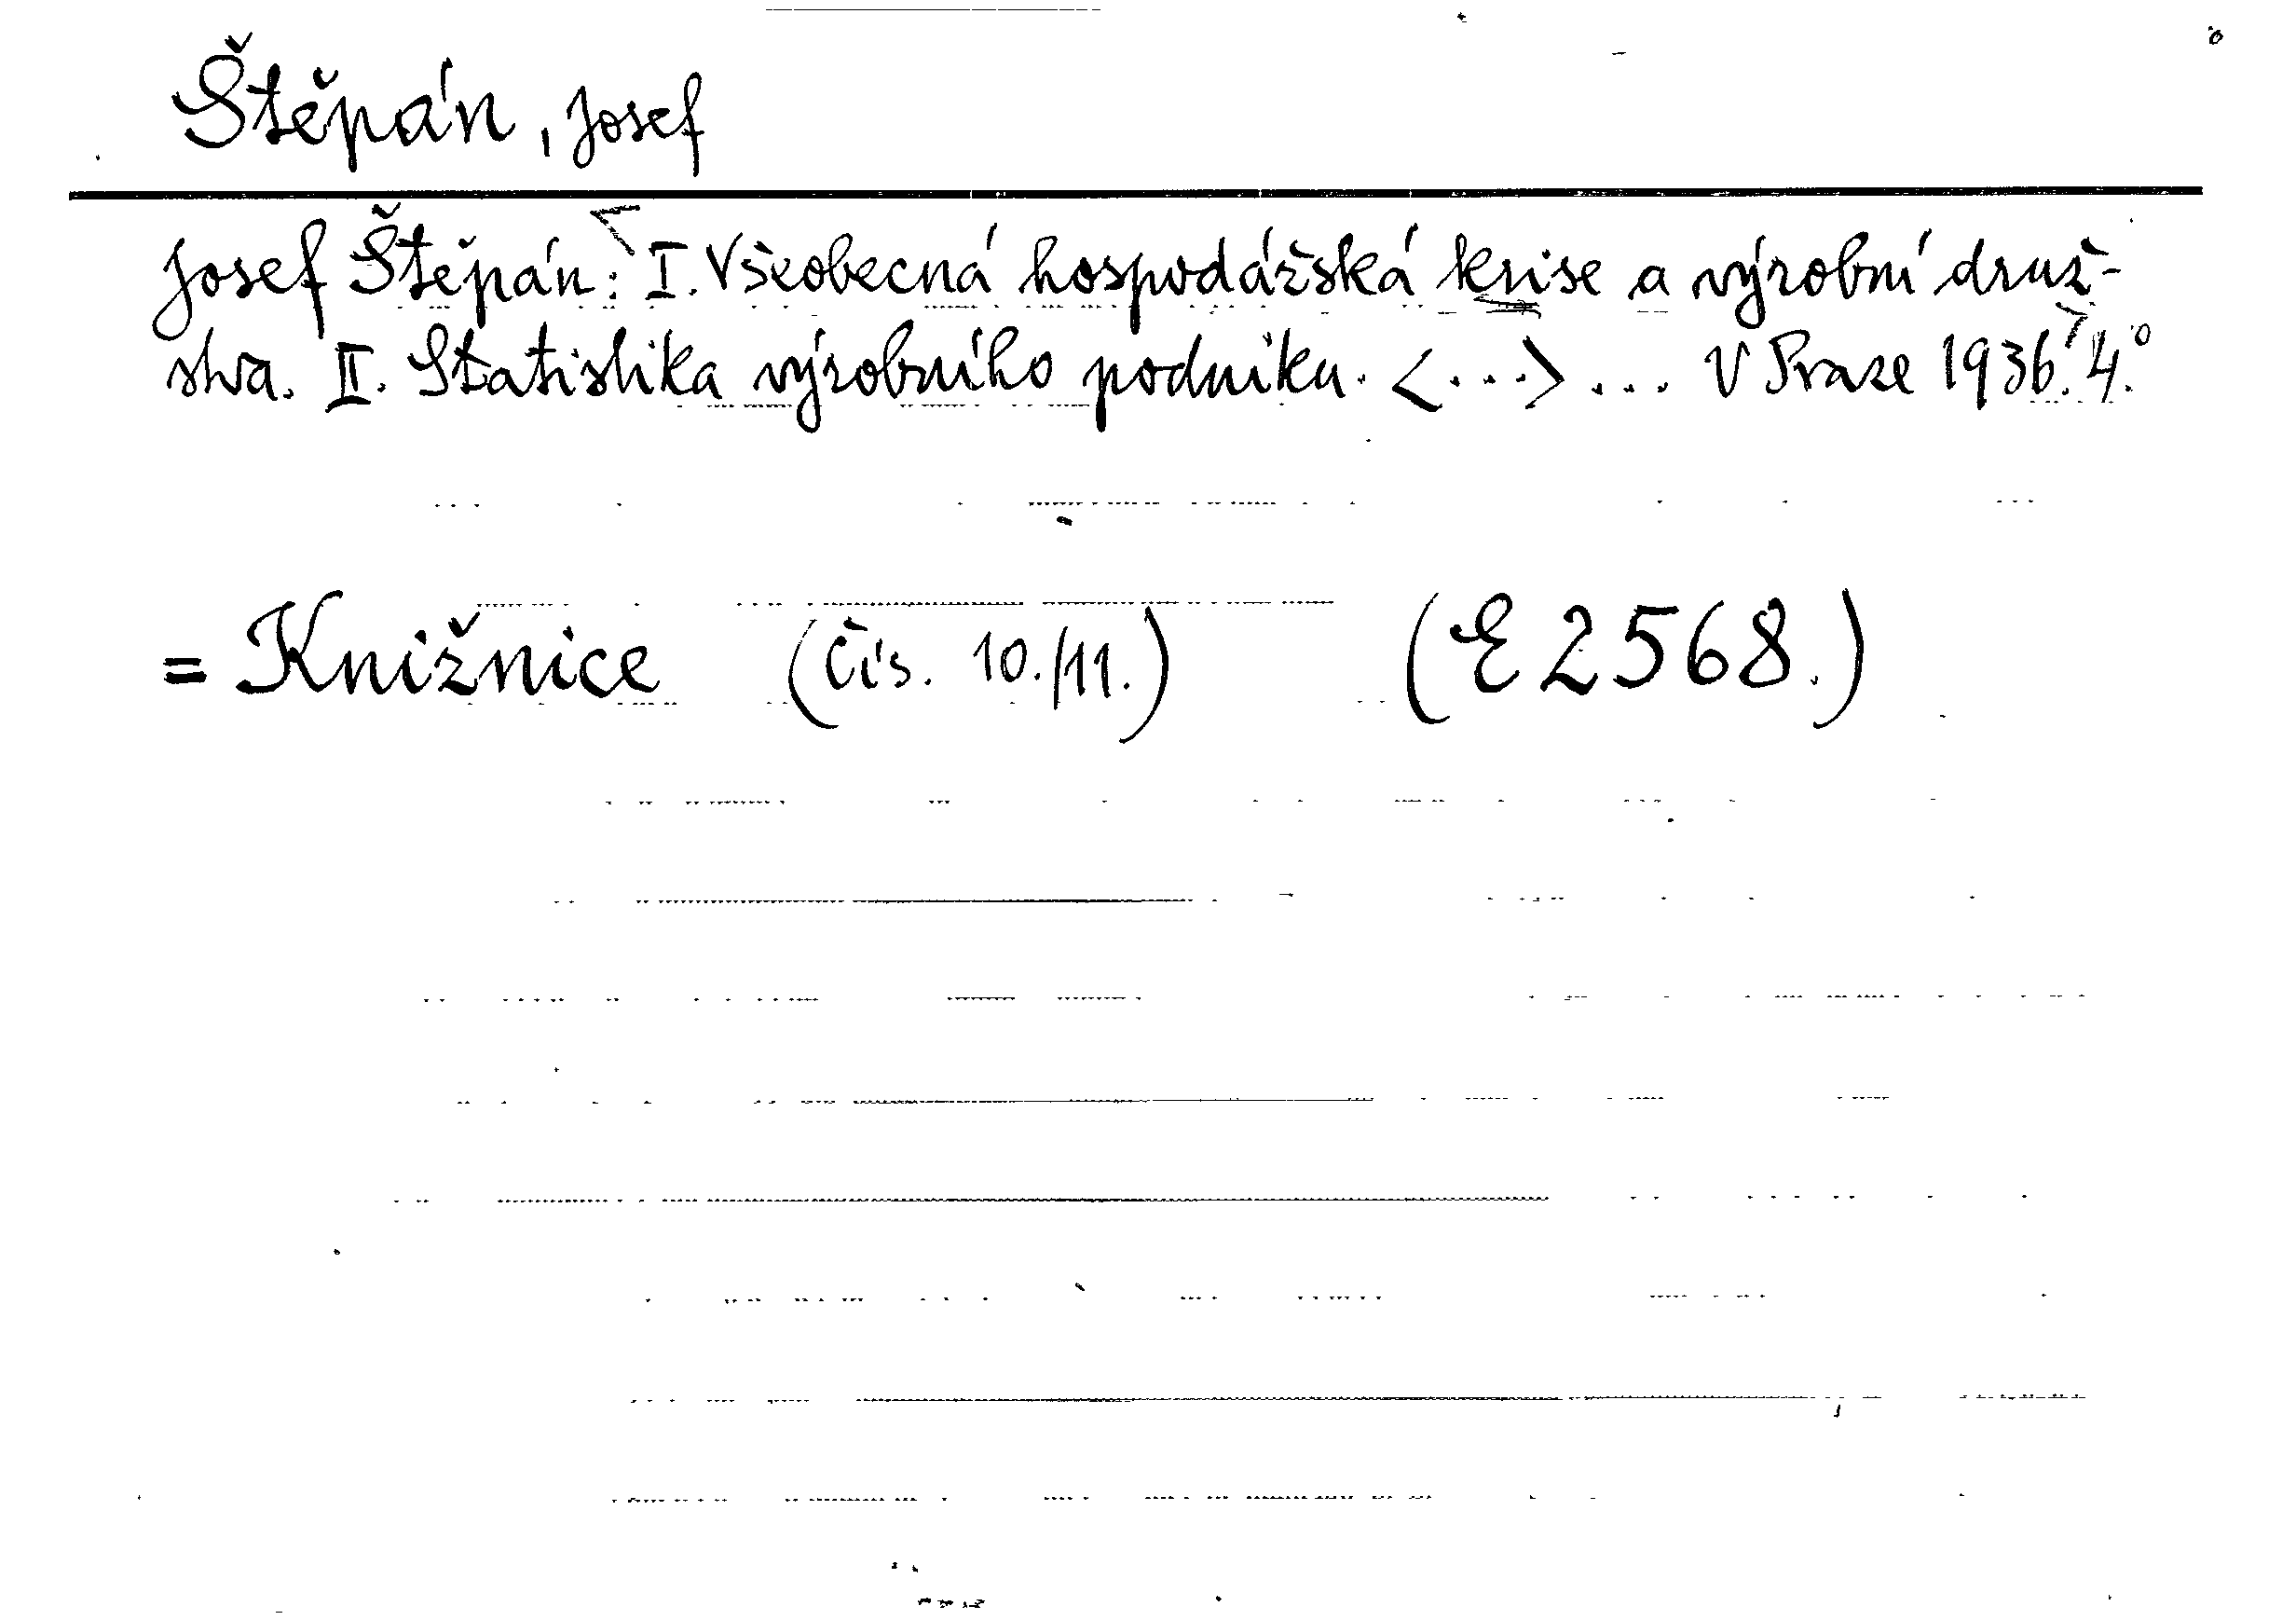 Štěpán, Josef
Josef Štěpán: I. Všeobecná hospodářská krise a výrobní druž-
stva. II. Statistika výrobního podniku. <...> ... V Praze 1936. 4.°
= Knižnice (Čís. 10./11.) (E 2568.)